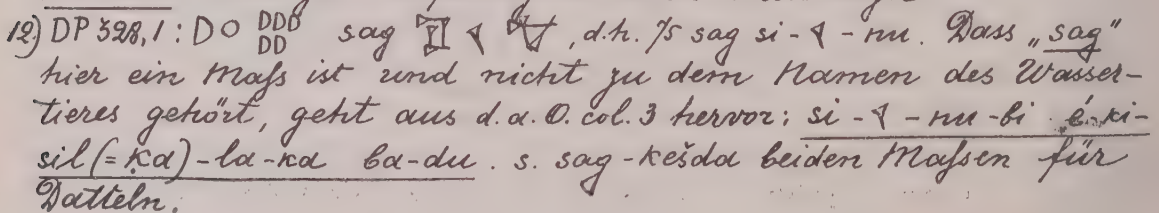 12) DP 328,1: DO DDD DD sag si - nu, d.h. 75 sag si - - nu. Dass „sag"
hier ein Maſs ist und nicht zu dem Namen des Wasser-
tieres gehört, geht aus d.a.O. col. 3 hervor: si - - nu - bi é-ki-
sil (= ḳa) - la - ka ba - du. s. sag - kešda bei den Maſsen für
Datteln.